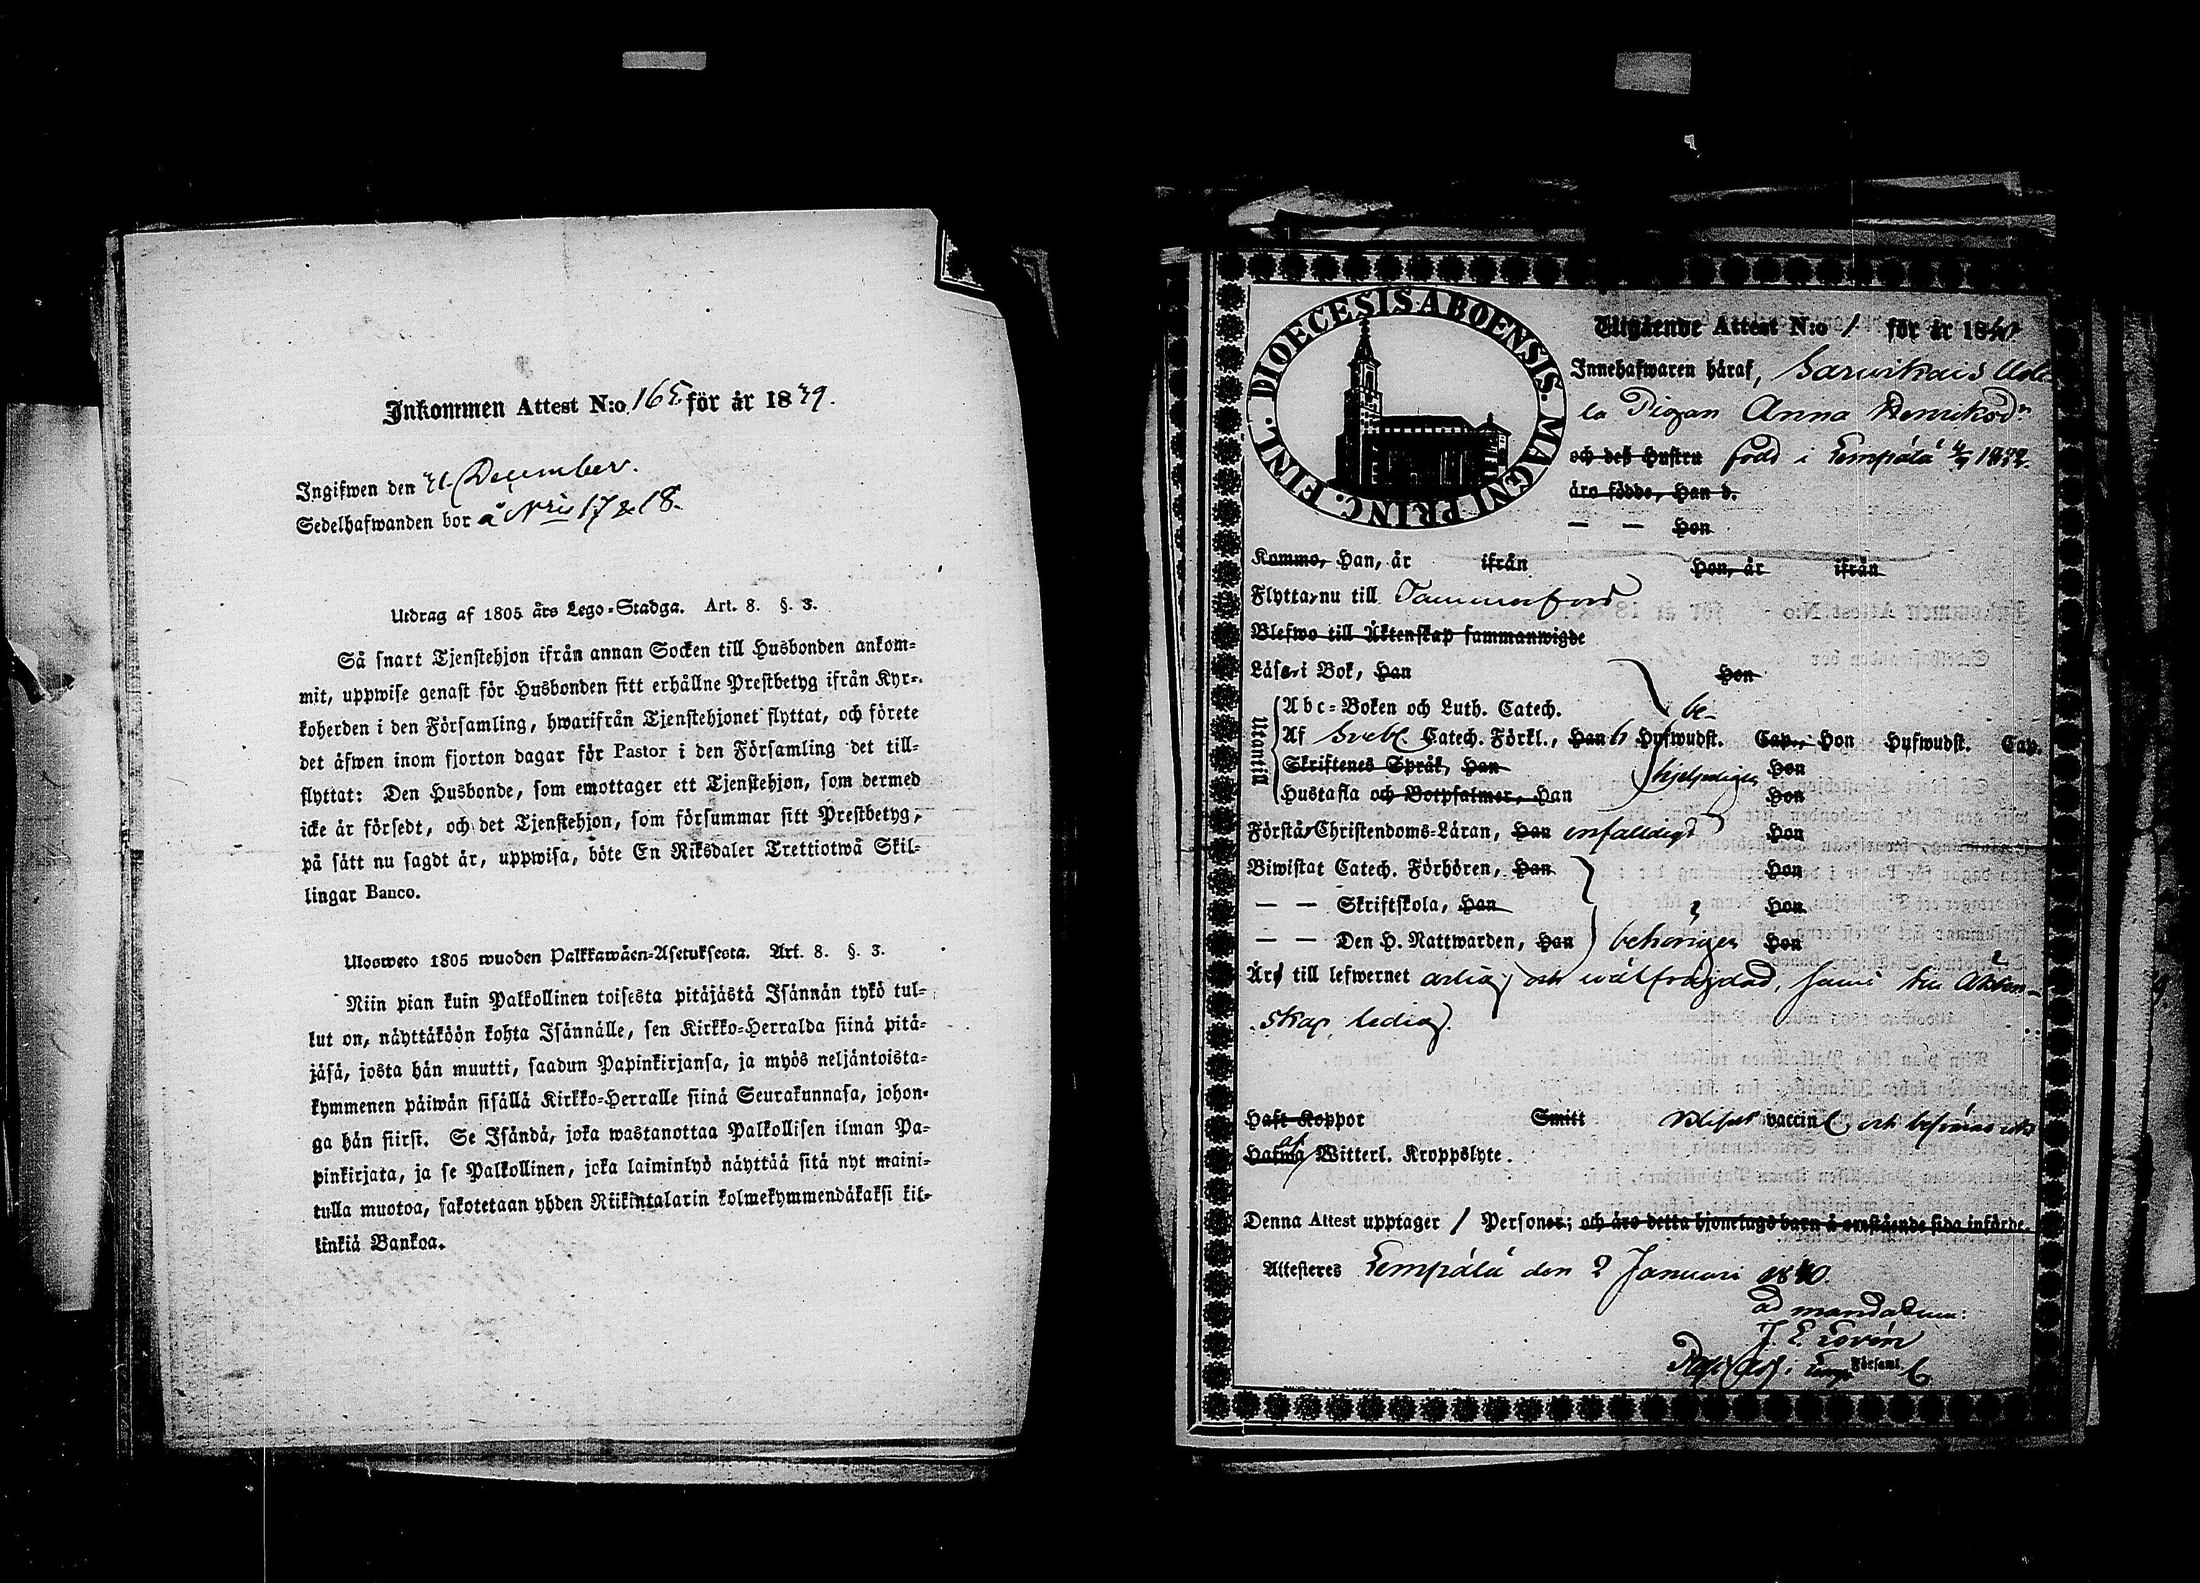 Inkommen Attest N:o 165. för år 1839.
Ingifwen den 31. December.
Sedelhafwanden bor å N:ris 17 & 18.
Utdrag af 1805 års Lego-Stadga. Art. 8. §. 3.
Så snart Tjenstehjon ifrån annan Socken till Husbonden ankom-
mit, uppwise genast för Husbonden sitt erhållne Prestbetyg ifrån Kyr-
koherden i den Församling, hwarifrån Tjenstehjonet flyttat, och förete
det äfwen inom fjorton dagar för Pastor i den Församling det till-
flyttat: Den Husbonde, som emottager ett Tjenstehjon, som dermed
icke är försedt, och det Tjenstehjon, som försummar sitt Prestbetyg,
på sätt nu sagdt är, uppwisa, böte En Riksdaler Trettiotwå Skil-
lingar Banco.
Ulosweto 1805 wuoden Palkkawäen-Asetuksesta. Art. 8. §. 3.
Niin pian kuin Palkollinen toisesta pitäjästä Isännän tykö tul-
lut on, näyttäköön kohta Isännälle, sen Kirkko-Herralda siinä pitä-
jäsä, josta hän muutti, saadun Papinkirjansa, ja myös neljäntoista-
kymmenen päiwän sisällä Kirkko-Herralle siinä Seurakunnasa, johon-
ga hän siirsi. Se Isändä, joka wastanottaa Palkollisen ilman Pa-
pinkirjata, ja se Palkollinen, joka laiminlyö näyttää sitä nyt maini-
tulla muotoa, sakotetaan yhden Riikintalarin kolmekymmendäkaksi kil-
linkiä Bankoa.
DIOECESIS ABOENSIS. MAGNI PRINC. FINL.
Utgående Attest N:o 1 för år 1840
Innehafwaren häraf,
la Pigan Anna Henriksdr
och deß Hustru född i Lempälä
äro födde, Han d.
— — Hon
Kommo, Han, år ifrån Hon, år ifrån
Flytta, nu till Tammerfors
Blefwo till Äktenskap sammanwigde
Läser i Bok, Han Hon
Utantill
Abc-Boken och Luth. Catech. be-
Af Sveb. Catech. Förkl., Han 6 Hufwudst. Cap., Hon Hufwudst. Cap.
Skriftenes Språk, Han hjelpeligen Hon
Hustafla och Botpsalmer, Han Hon
Förstår Christendoms-Läran, Han enfalldigt Hon
Biwistat Catech. Förhören, Han Hon
— — Skriftskola, Han Hon
— — Den H. Nattwarden, Han behörigen Hon
Är till lefwernet ärlig och wälfrägdad, samt till Äkten-
skap ledig.
Haft Koppor Smitt vaccin och
Hafwa af Witterl. Kroppslyte.
Denna Attest upptager 1 Personer; och äro detta hjonelags barn å omstående sida införde.
Attesteres Lempälä den 2 Januari 1840.
ad mandatum:
J. E. Lovén
i Församl.